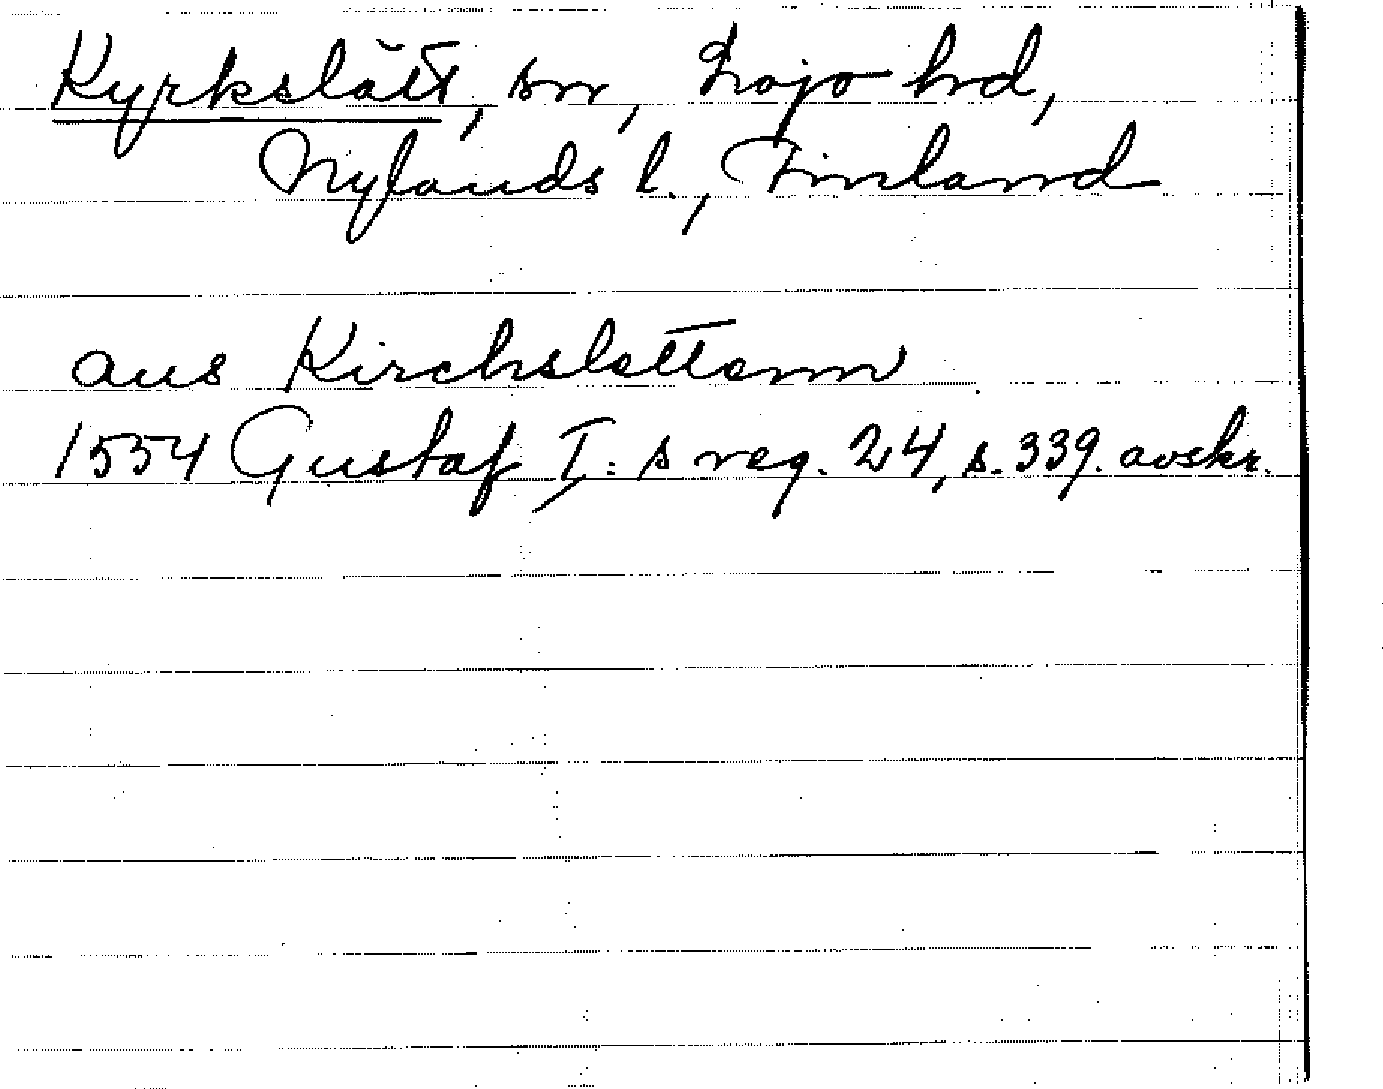 Kyrkslätt, sn, Lojo hrd,
Nylands l., Finland
aus Kirchslettenn
1554 Gustaf I:s reg. 24, s. 339. avskr.